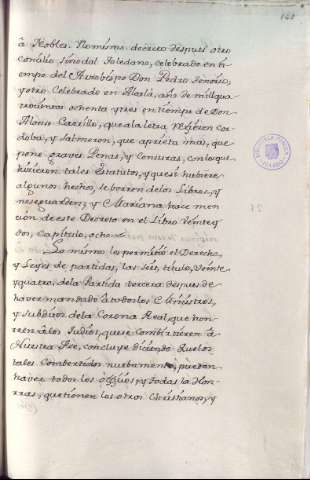 à Nobles. Lo mismo decreto despues otro
Concilio Sinodal Toledano, celebrado en ti-
empo del Arzobispo Don Pedro Tenorio,
y otro Celebrado en Alcalà, año de mill qua-
trocientos ochenta y tres en tiempo de Don
Alonso Carrillo, que a la letra refieren Cor-
doba, y Salmeron, que aprieta mas, que
pone graves Penas, y Censuras, con los que
hicieren tales Estatutos, y que si hubiere
algunos hechos, se borren de los Libros, y
no se guarden, y Mariana hace men-
cion de este Decreto en el Libro veinte y
dos, Capitulo, ocho.
Lo mismo lo permitiò el Derecho,
y Leyes de partidas, la seis, titulo, veinte
y quatro, de la Partida tercera despues de
haver mandado à todos los Ministros,
y subditos de la Corona Real, que hon-
ren à los Judios, que se combirtieren à
Nuestra Fee, concluye diciendo que los
tales Combertidos nuebamente, puedan
haver todos los ôfficios, y todas la Hon-
rras, que tienen los otros Christianos, y